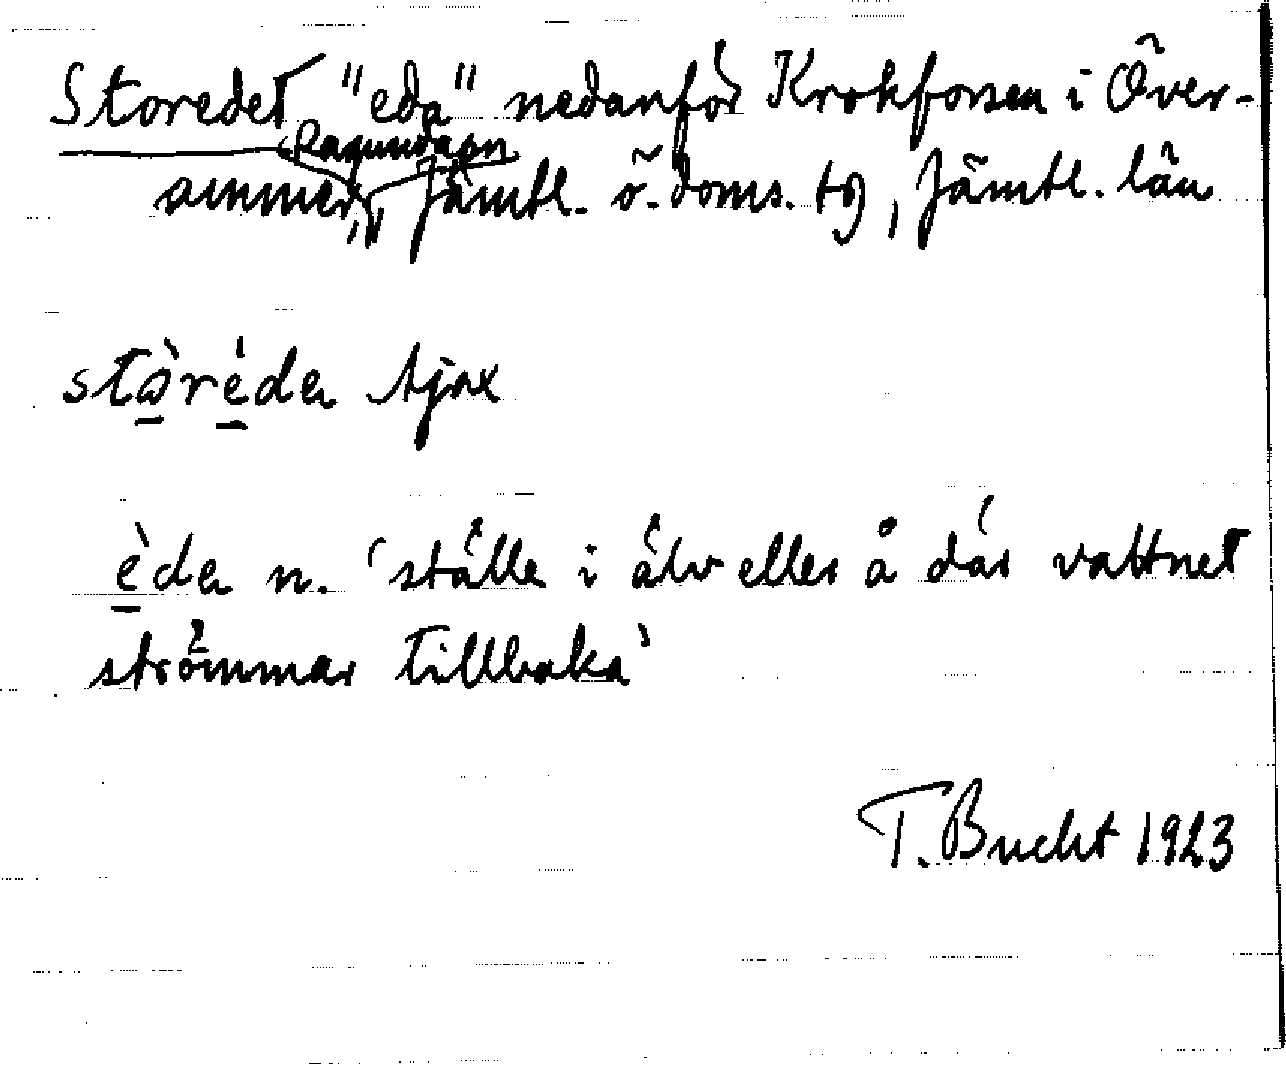 Storedet "eda" nedanför Krokforsen i Över-
ammer, Ragunda sn, Jämtl. ö. doms. tg, Jämtl. län
stɷ̀réda Ajax
èda n. 'ställe i älv eller å där vattnet
strömmar tillbaka'
T. Bucht 1923